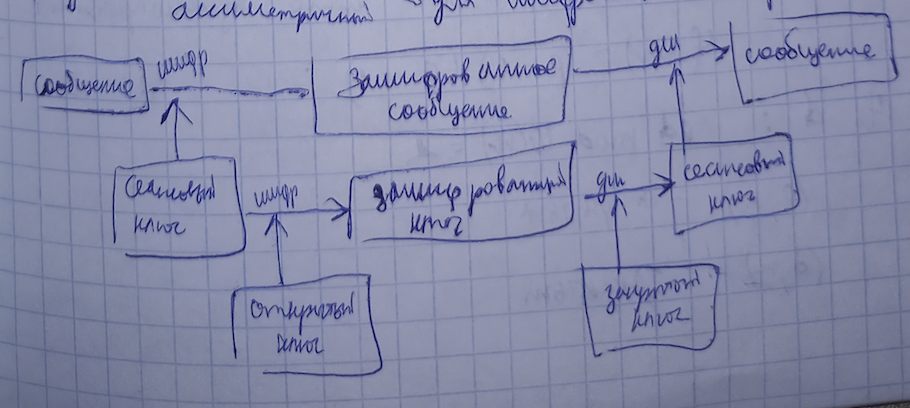 асиметричный для
сообщение
шифр
Зашифрованное
сообщение
дш
сообщение
сеансовый
ключ
шифр
зашифрованный
ключ
дш
сеансовый
ключ
открытый
ключ
закрытый
ключ